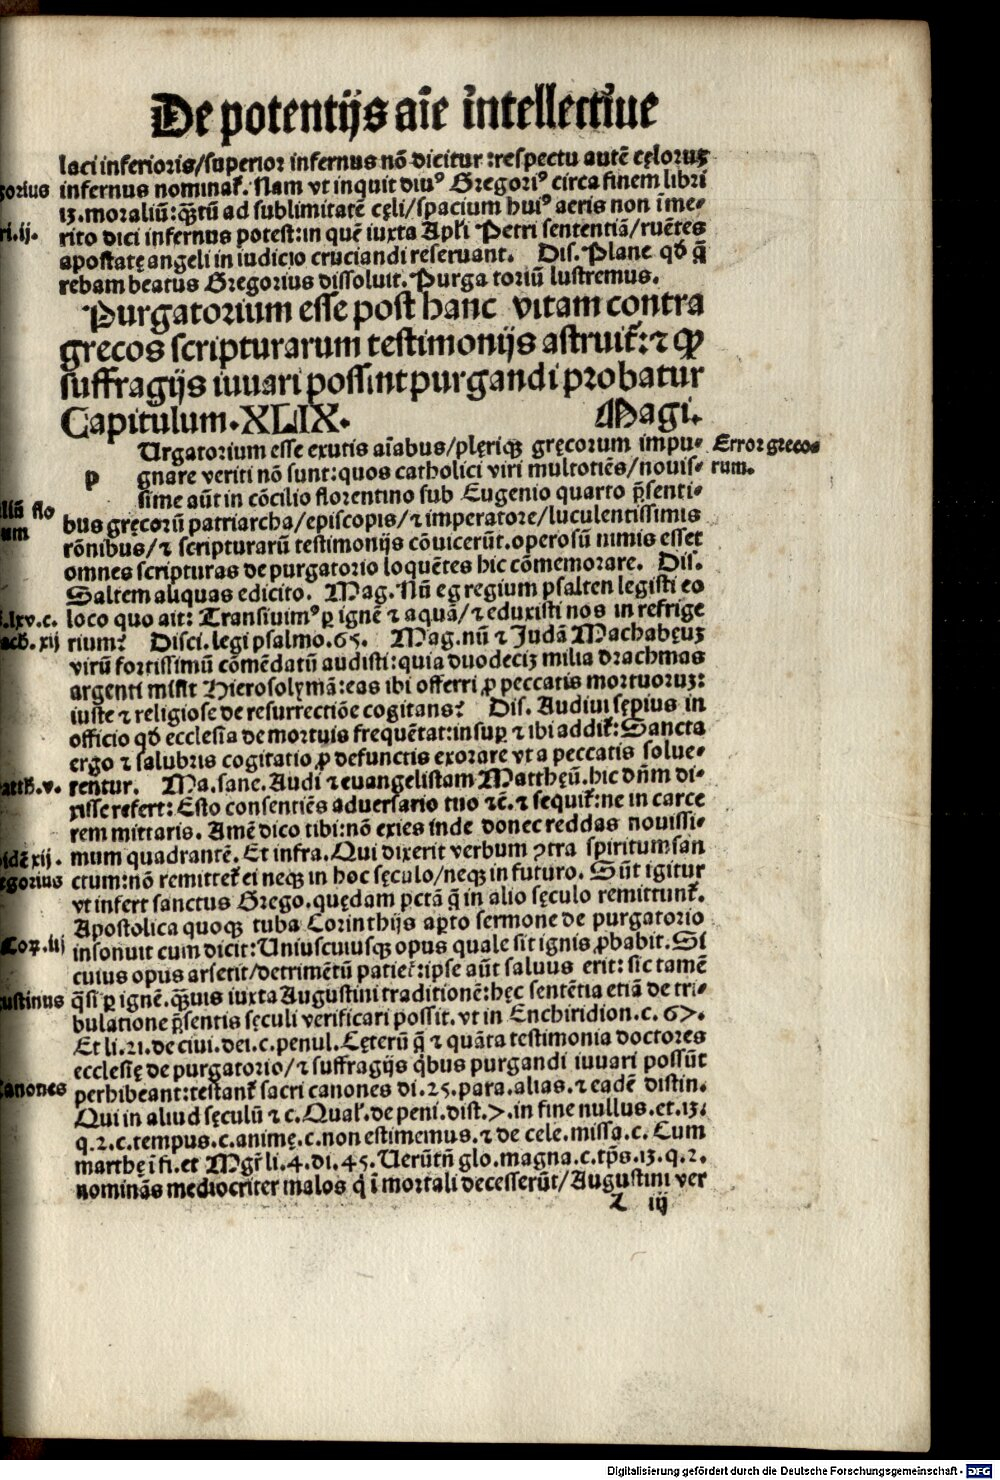 De potentijs aīe intellectiue
laci inferioris/superior infernus nō dicitur:respectu autē cęloruꝫ
infernus nominat᷑. Nam vt inquit diuꝰ Gregoriꝰ circa finem libri
13.moraliū:qꝫtū ad sublimitatē cęli/spacium huiꝰ aeris non īme-
rito dici infernus potest:in quē iuxta Apl̄i Petri sententiā/ruētes
apostatę angeli in iudicio cruciandi reseruant. Dis. Plane qđ q̄
rebam beatus Gregorius dissoluit. Purga toriū lustremus.
Purgatorium esse post hanc vitam contra
grecos scripturarum testimonijs astruit᷑:⁊ ꝙ
suffragijs iuuari possint purgandi probatur
Capitulum.XLIX. Magi.
p Urgatorium esse exutis aīabus/plęriqꝫ gręcorum impu-
gnare veriti nō sunt:quos catholici viri multotiēs/nouis-
sime aūt in cōcilio florentino sub Eugenio quarto p̄senti-
bus gręcorū patriarcha/episcopis/⁊ imperatore/luculentissimis
rōnibus/⁊ scripturarū testimonijs cōuicerūt.operosū nimis esset
omnes scripturas de purgatorio loquētes hic cōmemorare. Dis.
Saltem aliquas edicito. Mag. Nū egregium psalten legisti eo
loco quo ait: Transiuimꝰ ꝑ ignē ⁊ aquā/⁊ eduxisti nos in refrige
rium? Disci.legi psalmo.65. Mag.nū ⁊ Judā Machabęuꝫ
virū fortissimū cōmēdatū audisti:quia duodeciꝫ milia drachmas
argenti misit Hierosolymā:eas ibi offerri ꝓ peccatis mortuoruꝫ:
iuste ⁊ religiose de resurrectiōe cogitans? Dis. Audiui sępius in
officio qđ ecclesia de mortuis frequētat:insuꝑ ⁊ ibi addit᷑:Sancta
ergo ⁊ salubris cogitatio ꝓ defunctis exorare vt a peccatis solue-
rentur. Ma.sane.Audi ⁊ euangelistam Matthęū.hic dn̄m di-
xisse refert: Esto consentiēs aduersario tuo ⁊ē.⁊ sequit᷑:ne in carce
rem mittaris. Amē dico tibi:nō exies inde donec reddas nouissi-
mum quadrantē. Et infra.Qui dixerit verbum ꝯtra spiritum san
ctum:nō remittet᷑ ei neqꝫ in hoc sęculo/neqꝫ in futuro. Sūt igitur
vt infert sanctus Grego.quędam pctā q̄ in alio sęculo remittunt᷑.
Apostolica quoqꝫ tuba Corinthijs aꝑto sermone de purgatorio
insonuit cum dicit:Uniuscuiusqꝫ opus quale sit ignis ꝓbabit.Si
cuius opus arserit/detrimētū patiet᷑:ipse aūt saluus erit: sic tamē
q̄si ꝑ ignē.qꝫuis iuxta Augustini traditionē:hęc sentētia etiā de tri-
bulatione p̄sentis sęculi verificari possit.vt in Enchiridion.c.67.
Et li.21.de ciui.dei.c.penul.Cęterū q̄ ⁊ quāta testimonia doctores
ecclesię de purgatorio/⁊ suffragijs qbus purgandi iuuari possūt
perhibeant:testant᷑ sacri canones di.25.para.alias.⁊ eadē distin.
Qui in aliud sęculū ⁊ c.Qual᷑.de peni.dist.7.in fine nullus.et.13.
q.2.c.tempus.c.animę.c.non estimemus.⁊ de cele.missa.c. Cum
marthę ī fi.et Mgr̄ li.4.di.45.Uerūtn̄ glo.magna.c.tp̄s.13.q.2.
nominās mediocriter malos q̇ ī mortali decesserūt/Augustini ver
Z iij
gorius
ri.ij.
Error greco-
rum.
lliū flo
um
.lxv.c.
acb. xij
atth.v.
idē xij.
egorius
Coꝝ.iij
ustinus
Canones
Digitalisierung gefördert durch die Deutsche Forschungsgemeinschaft - DFG